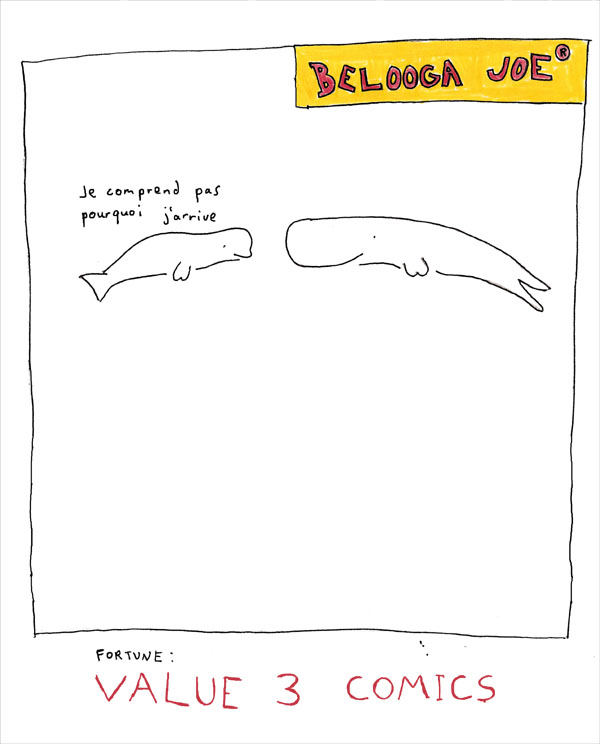 BELOOGA JOE®
Je comprend pas
pourquoi j'arrive
FORTUNE:
VALUE 3 COMICS